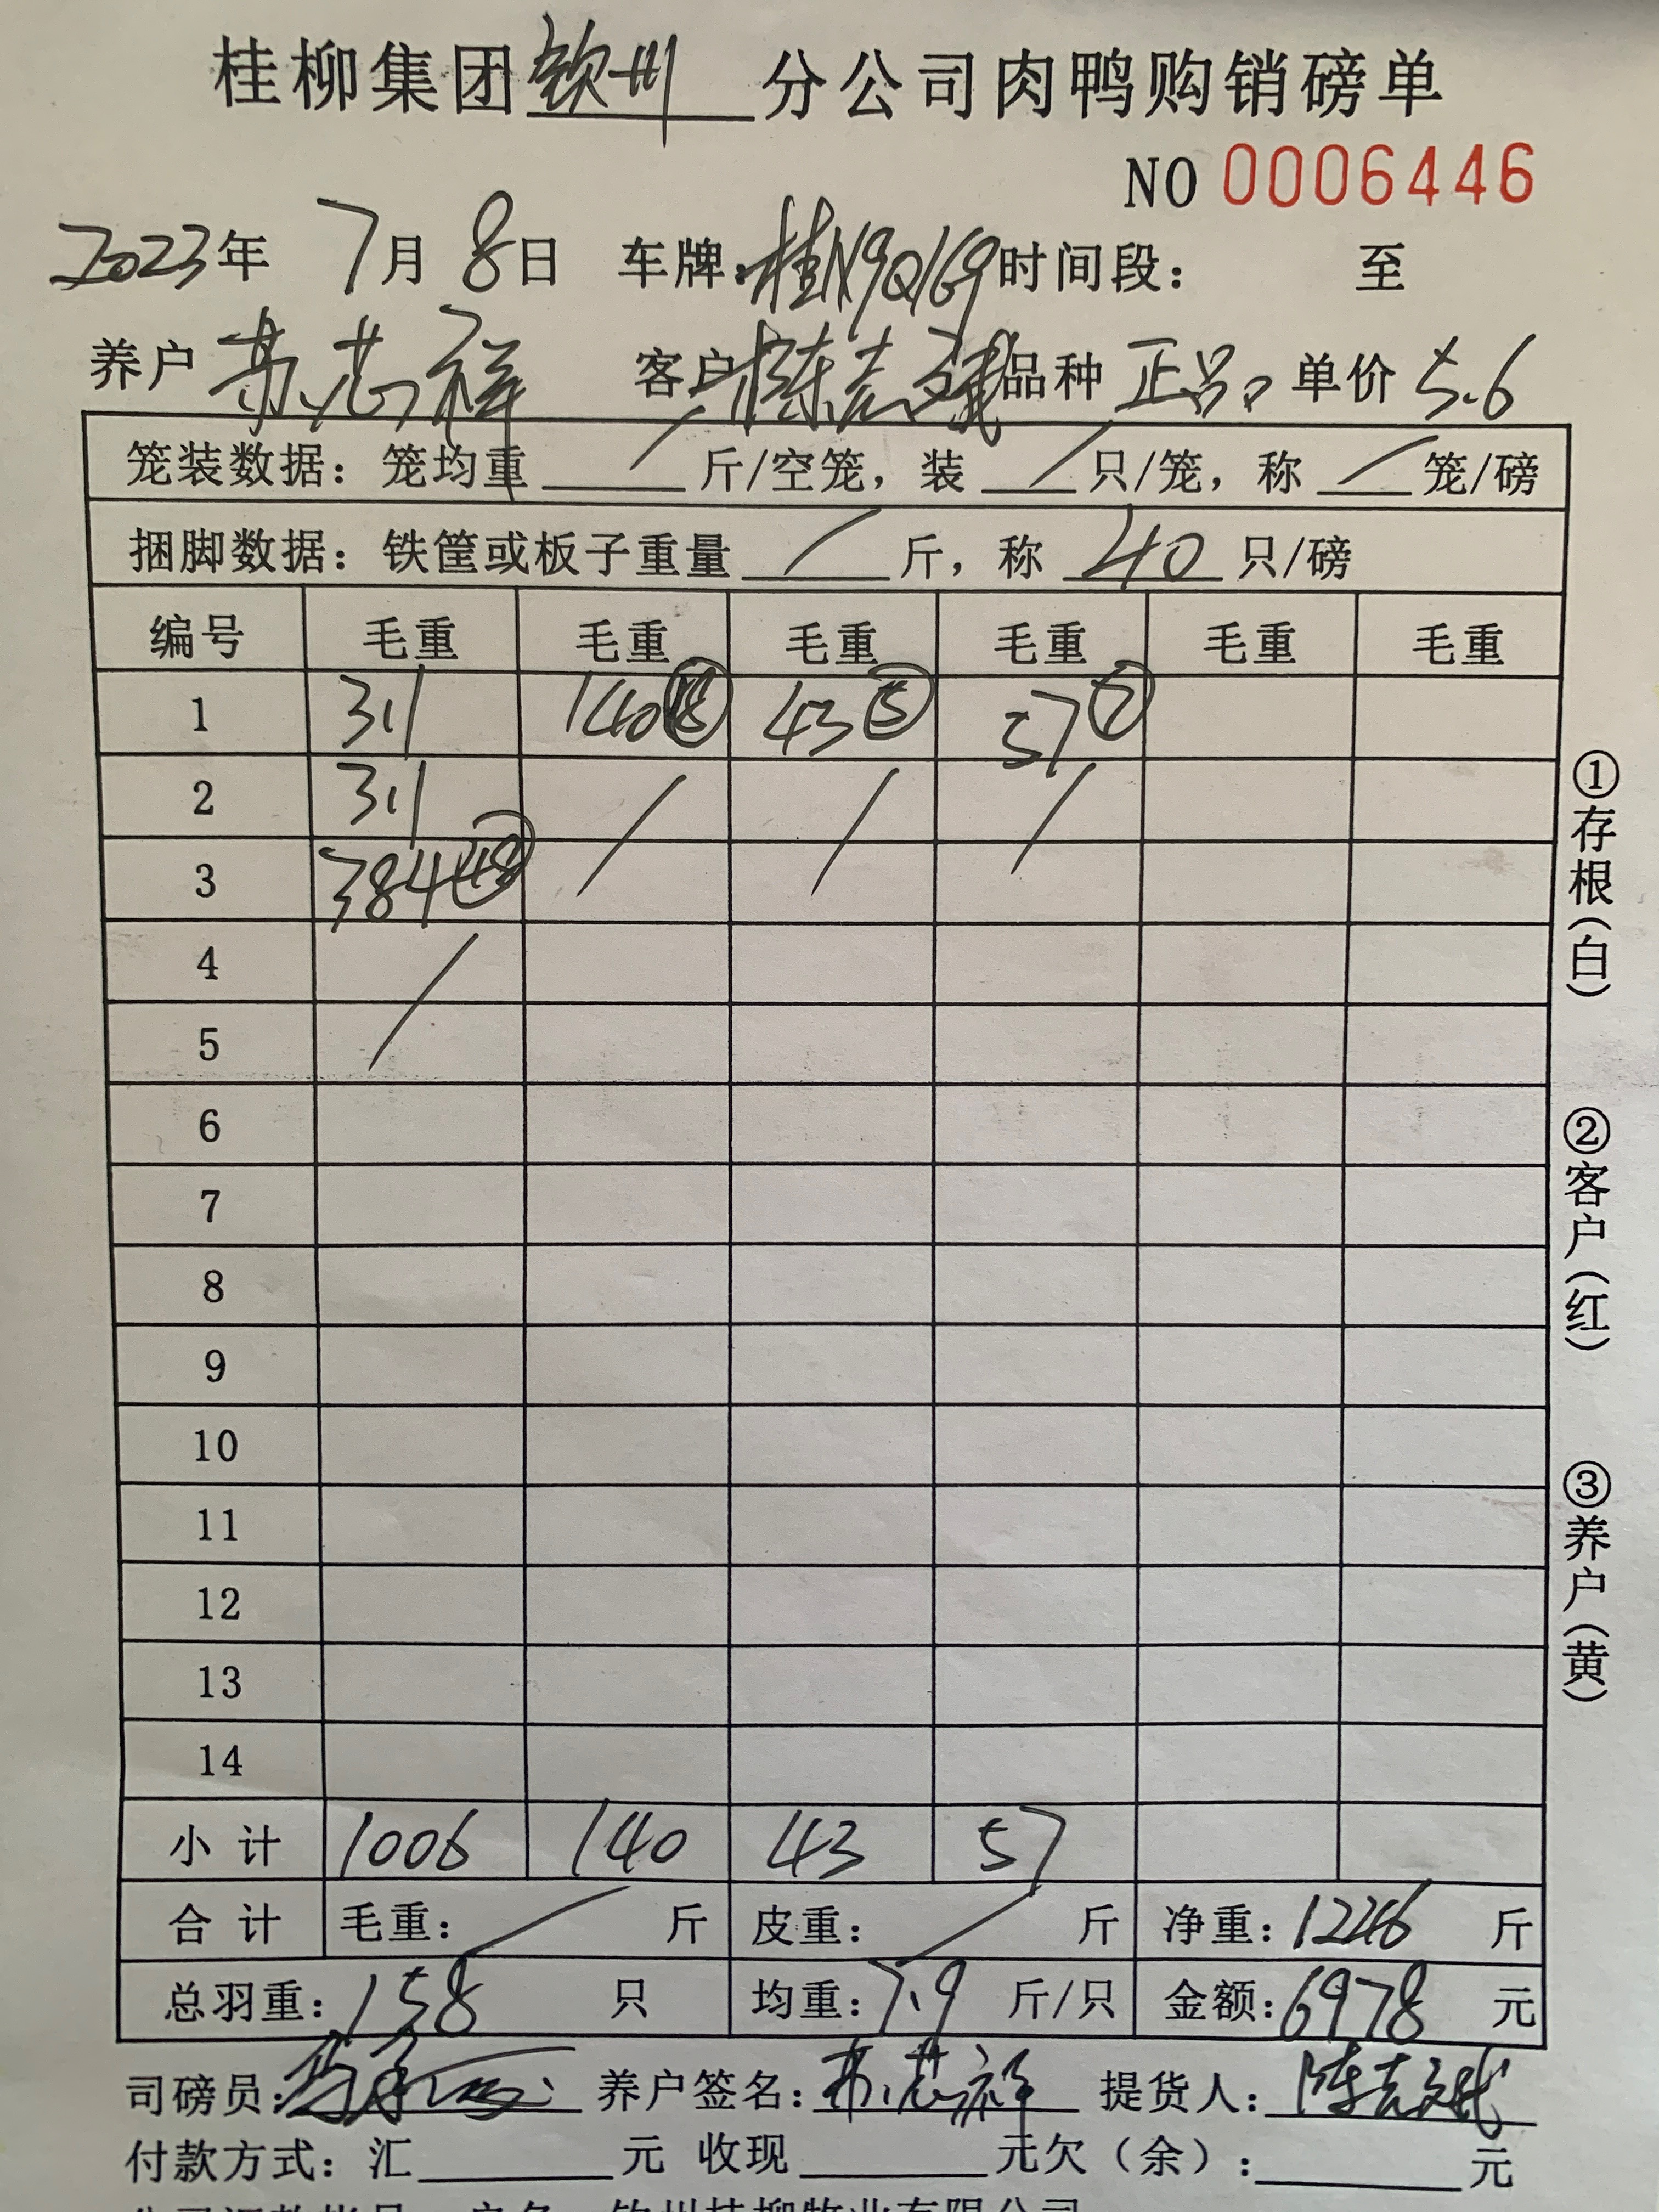 桂柳集团钦州分公司肉鸭购销磅单
NO 0006446
2023年 7月 8日 车牌:桂N9Q169时间段: 至
养户 苏芯祥 客户 陈志斌 品种 正品 单价 5.6
笼装数据: 笼均重 / 斤/空笼, 装 / 只/笼, 称 / 笼/磅
捆脚数据: 铁筐或板子重量 / 斤, 称 40 只/磅
编号 毛重 毛重 毛重 毛重 毛重 毛重
1 311 140⑱ 43⑤ 57⑦
2 311 / / /
3 384㊽
4 /
5
6
7
8
9
10
11
12
13
14
小计 1006 140 43 57
合计 毛重: / 斤 皮重: / 斤 净重: 1246 斤
总羽重: 158 只 均重: 7.9 斤/只 金额: 6978 元
司磅员: 养户签名: 苏芯祥 提货人: 陈志斌
付款方式: 汇 元 收现 元欠(余): 元
①存根(白)
②客户(红)
③养户(黄)